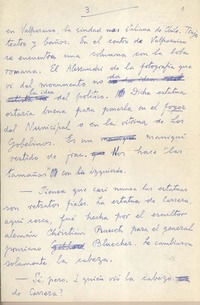 3
1
en Valparaíso, la ciudad más italiana de Chile. Trajo
teatro y baños. En el centro de Valparaíso
se encuentra una columna con la loba
romana. El Alessandri de la fotografía que
vi del monumento no
del político. Dicha estatua
estaría buena para ponerla en el foyer
del Municipal o en la vitrina de los
Gobelinos. Es un maniquí
vestido de Nos hace "las
tamañas" con la izquierda.
— Piensa que casi nunca las estatuas
son retratos fieles. La estatua de Carrera,
aquí cerca, fué hecha por el escultor
alemán Christian Rauch para el general
prusiano Bluecher. Le cambiaron
solamente la cabeza.
— Sí, pero ¿quién vió la cabeza
de Carrera?